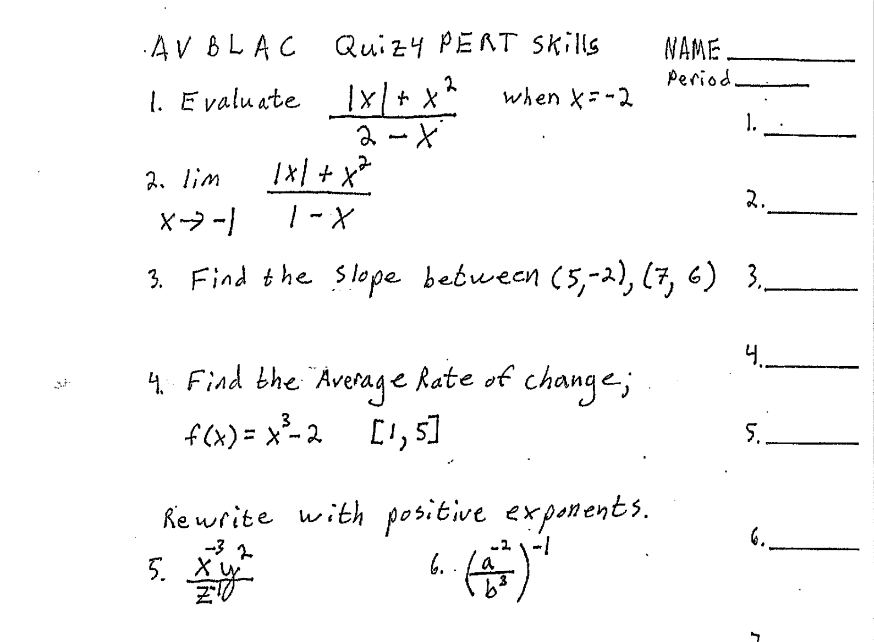 AV BLAC Quiz 4 PERT Skills NAME
Period
1. Evaluate |x| + x² / 2 - x when x = -2
1.
2. lim x→-1 |x| + x² / 1 - x
2.
3. Find the Slope between (5,-2), (7, 6) 3.
4.
4. Find the Average Rate of change;
f(x) = x³ - 2 [1, 5]
5.
Rewrite with positive exponents.
6.
5. x⁻³y² / z⁻¹ 6. (a⁻² / b³)⁻¹